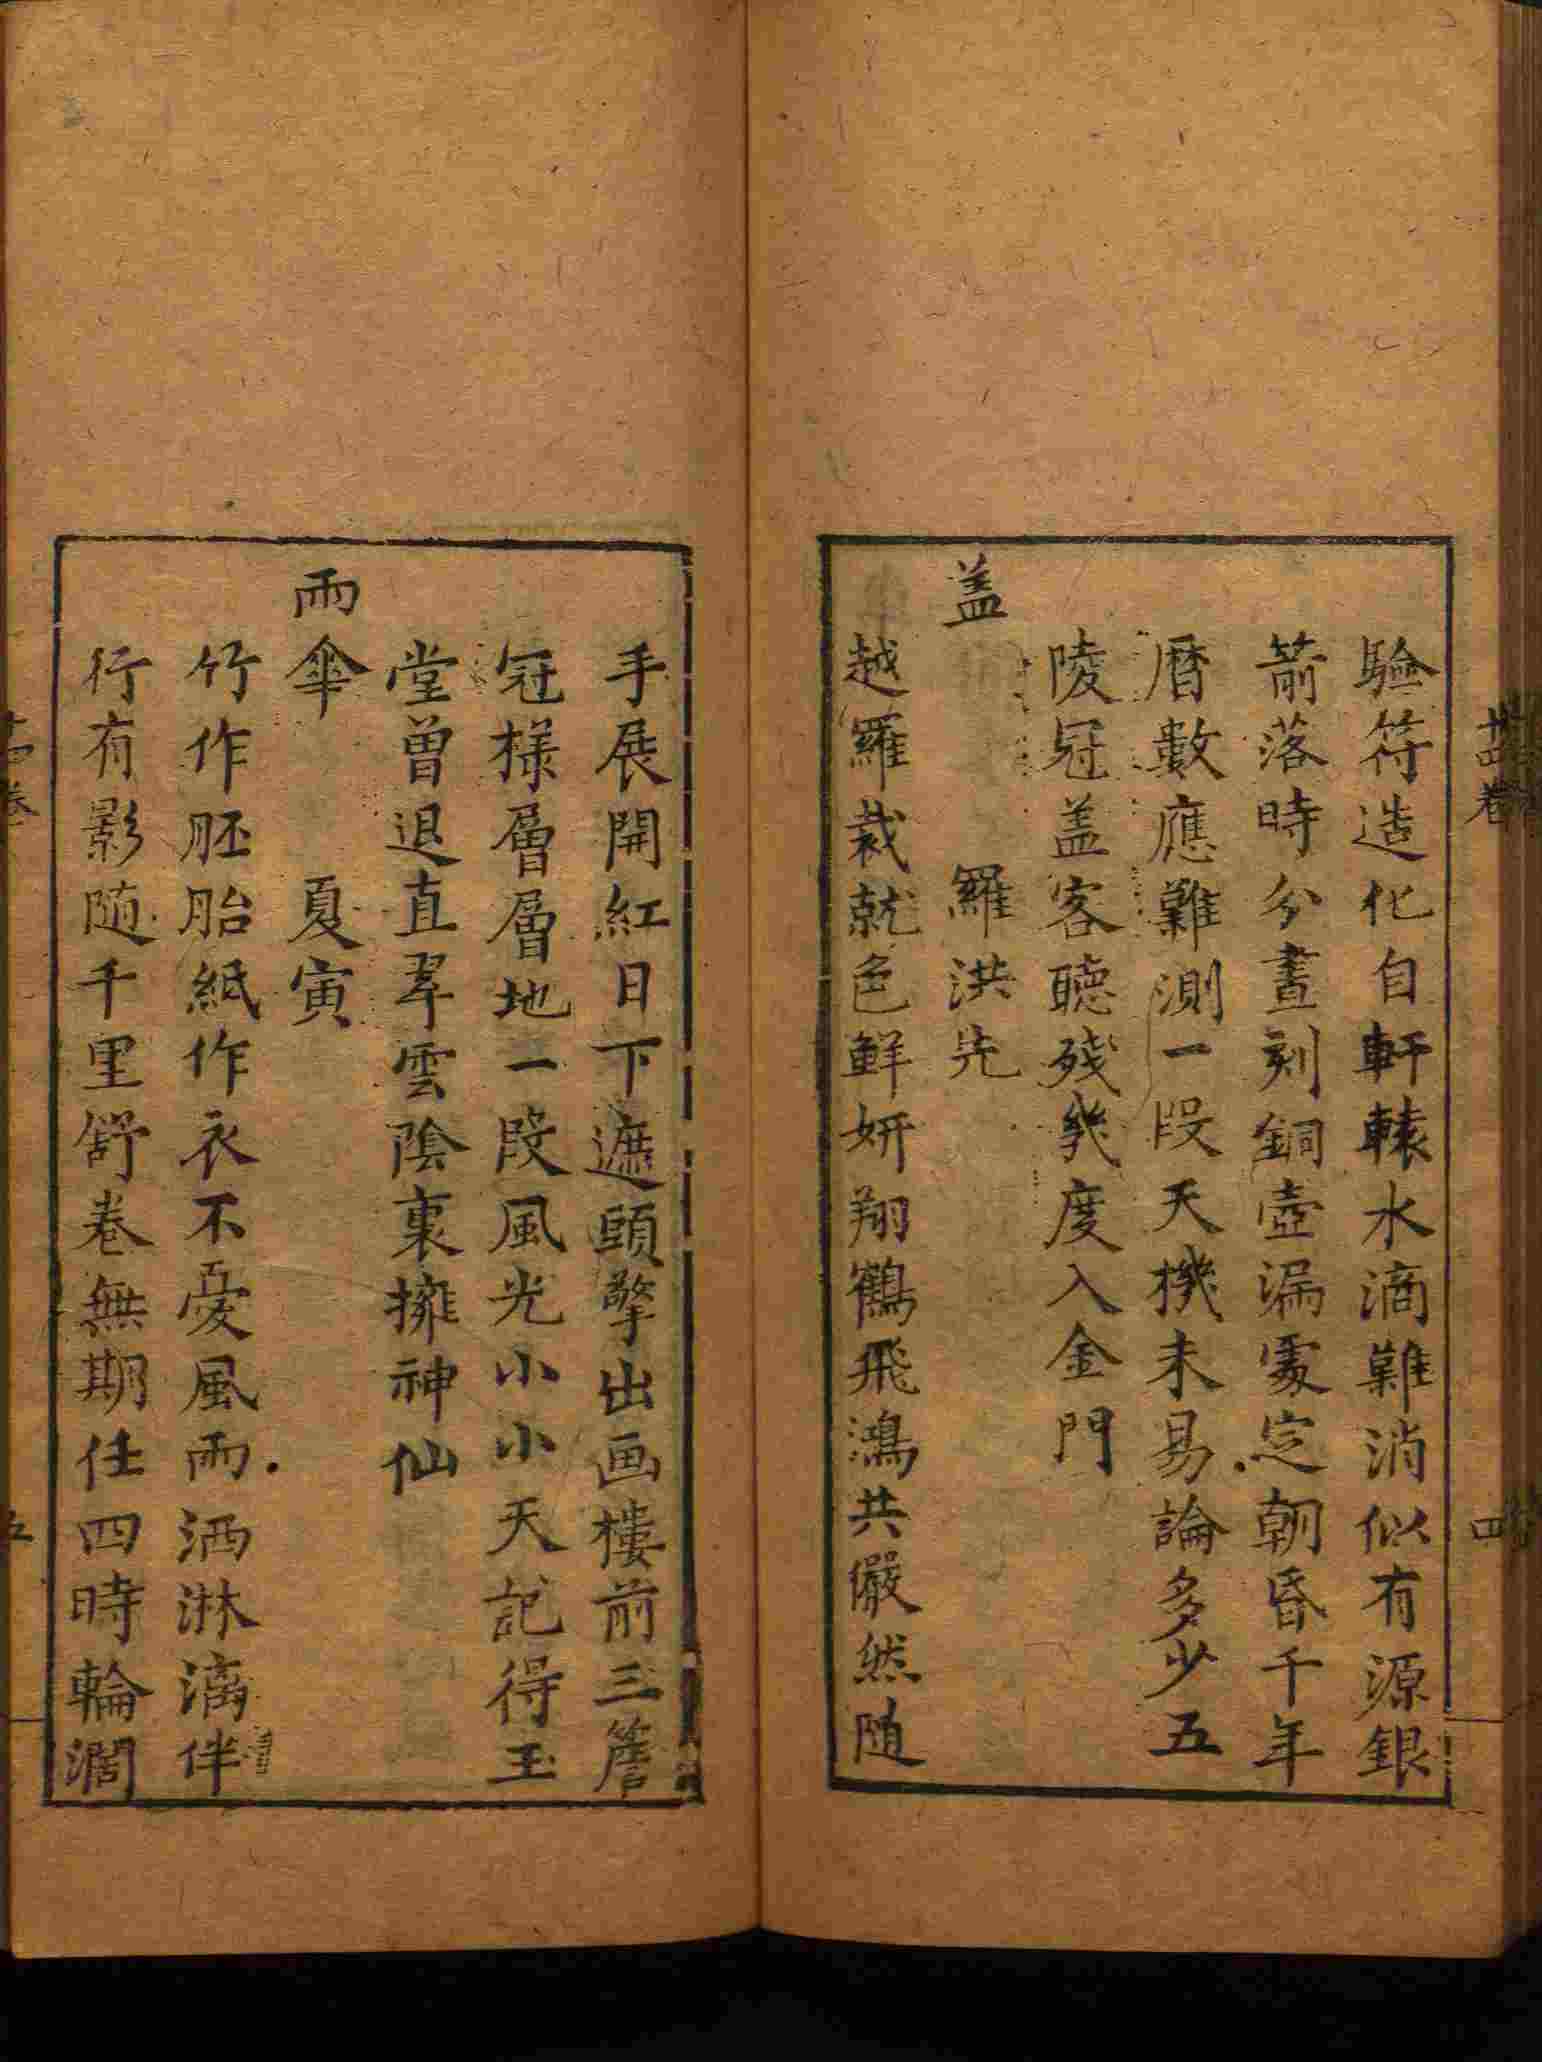 驗符造化自軒轅水滴難消似有源銀
箭落時分晝刻銅壺漏處定朝昏千年
曆數應難測一段天機未易論多少五
陵冠盖客聽殘幾度入金門
盖　　羅洪先
越羅裁就色鮮妍翔鶴飛鴻共儼然随
手展開紅日下遮頭擎出画樓前三簷
冠様層層地一段風光小小天記得玉
堂曾退直翠雲陰裏擁神仙
雨傘　　夏寅
竹作胚胎紙作衣不憂風雨洒淋漓伴
行有影随千里舒卷無期任四時輪濶
廿四卷
四
五